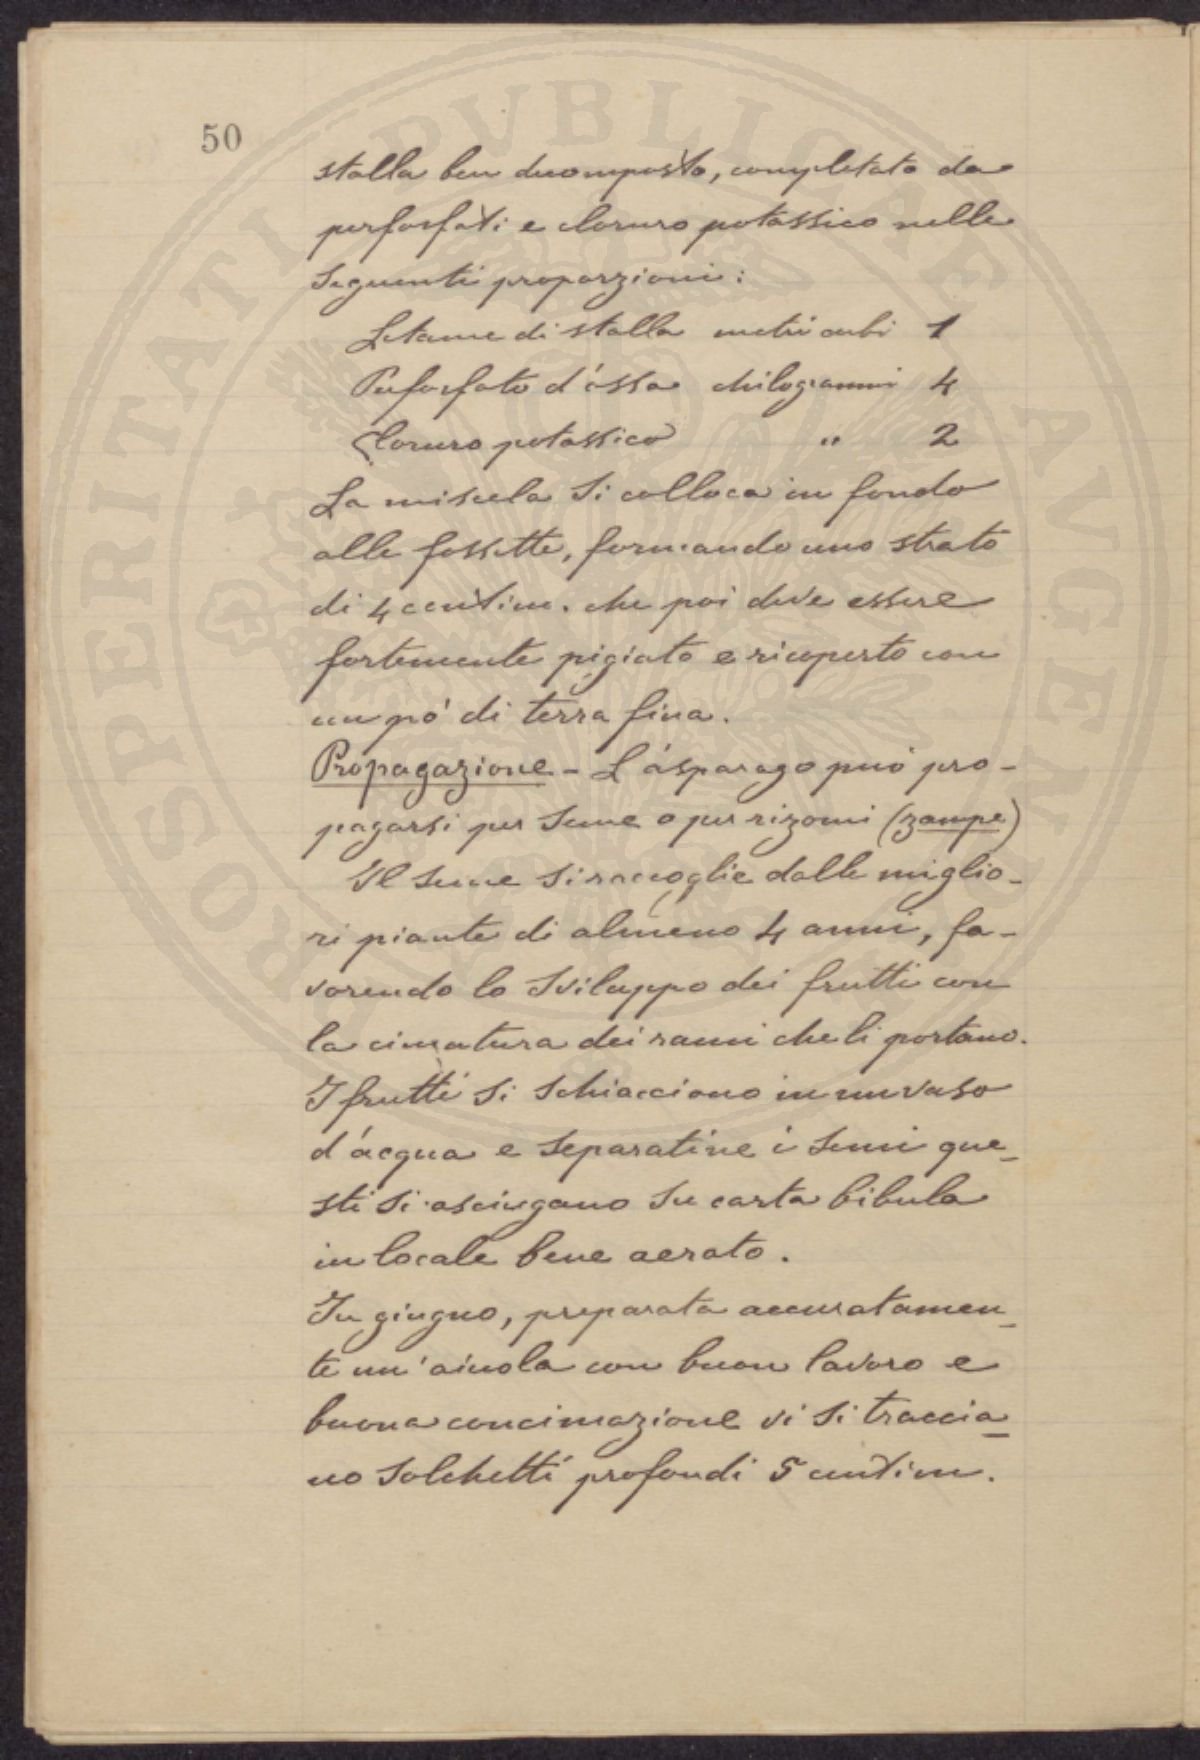 50
stalla ben decomposto, completato da
perfosfati e cloruro potassico nelle
seguenti proporzioni:
Letame di stalla metri cubi 1
Perfosfato d'ossa chilogrammi 4
Cloruro potassico " 2
La miscela si colloca in fondo
alle fossette, formando uno strato
di 4 centim. che poi deve essere
fortemente pigiato e ricoperto con
un pó di terra fina.
Propagazione - L'asparago puó pro-
pagarsi per seme o per rizomi (zampe)
Il seme si raccoglie dalle miglio-
ri piante di almeno 4 anni, fa-
vorendo lo sviluppo dei frutti con
la cimatura dei rami che li portano.
I frutti si schiacciano in un vaso
d'acqua e separatine i semi que-
sti si asciugano su carta bibula
in locale bene aerato.
In giugno, preparata accuratamen-
te un'aiuola con buon lavoro e
buona concimazione vi si traccia-
no solchetti profondi 5 centim.
PROSPERITATI PVBLICAE AVGENDAE